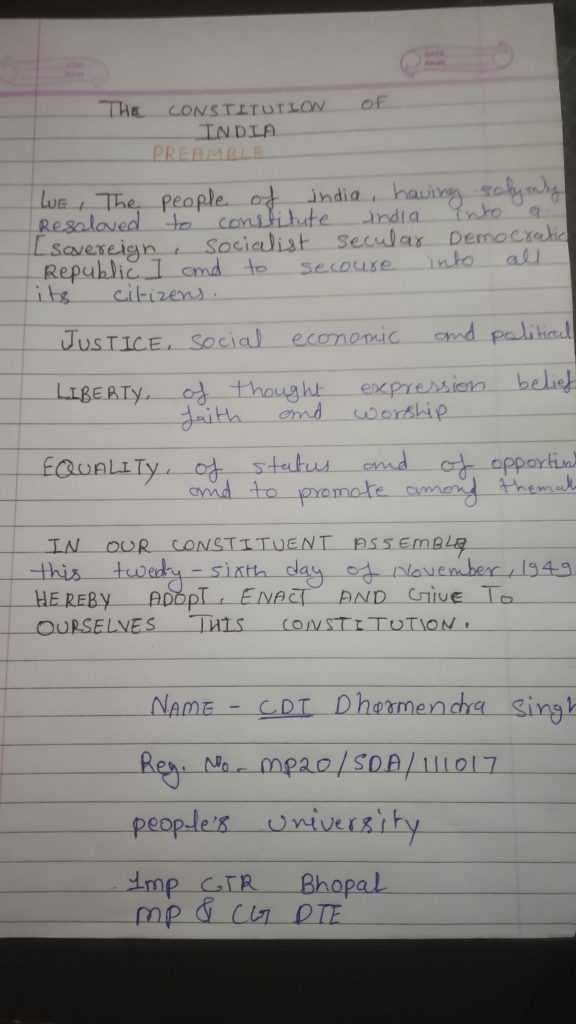 DATE
PAGE
THE CONSTITUTION OF
INDIA
PREAMBLE
WE, The people of india, having solymnly
Resoloved to constitute india into a
[Sovereign, Socialist Secular Democratic
Republic] and to secoure into all
its citizens.
JUSTICE, Social economic and political
LIBERTY, of thought expression belief
faith and worship
EQUALITY, of status and of opportun
and to promote among themal
IN OUR CONSTITUENT ASSEMBLY
this twedy-sixth day of November, 1949
HEREBY ADOPT, ENACT AND GIVE TO
OURSELVES THIS CONSTITUTION.
NAME - CDT Dharmendra Singh
Reg. No - MP20/SDA/111017
people's University
1mp CTR Bhopal
MP & CG DTE